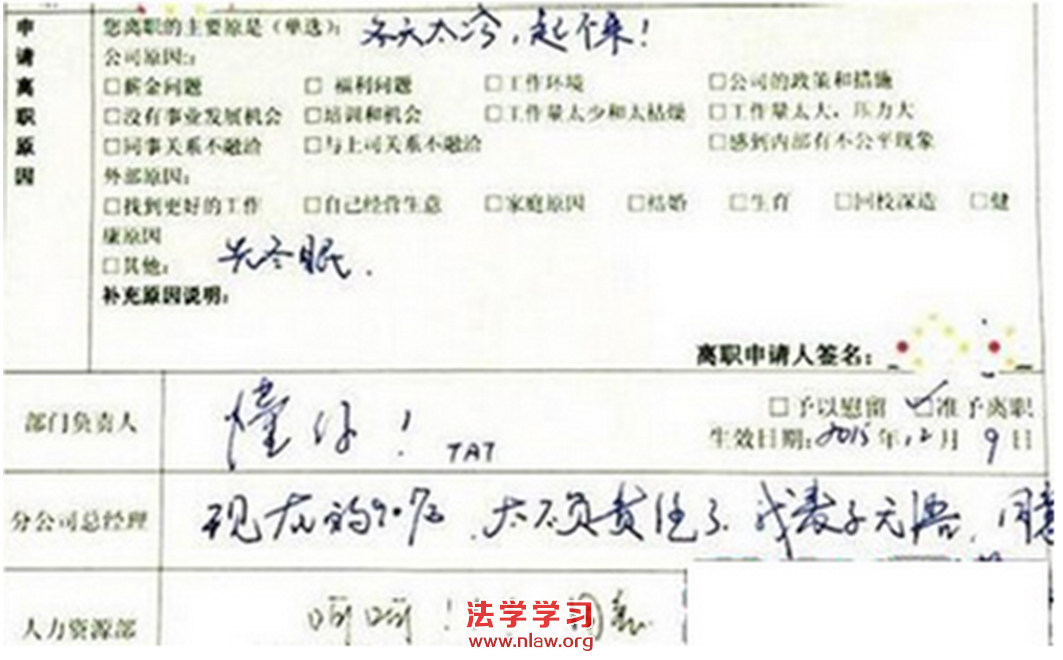 申请离职原因
您离职的主要原是（单选）：冬天太冷，起不来！
公司原因：
□薪金问题 □ 福利问题 □工作环境 □公司的政策和措施
□没有事业发展机会 □培训和机会 □工作量太少和太枯燥 □工作量太大，压力大
□同事关系不融洽 □与上司关系不融洽 □感到内部有不公平现象
外部原因：
□找到更好的工作 □自己经营生意 □家庭原因 □结婚 □生育 □回校深造 □健
康原因
□其他： 先冬眠．
补充原因说明：
离职申请人签名：
部门负责人 懂你！ TAT □予以慰留 ☑准予离职
生效日期：2015年12月9日
分公司总经理 现在的90后，太不负责任了．我表示无语．同意
人力资源部 呵呵！同意
法学学习
www.nlaw.org